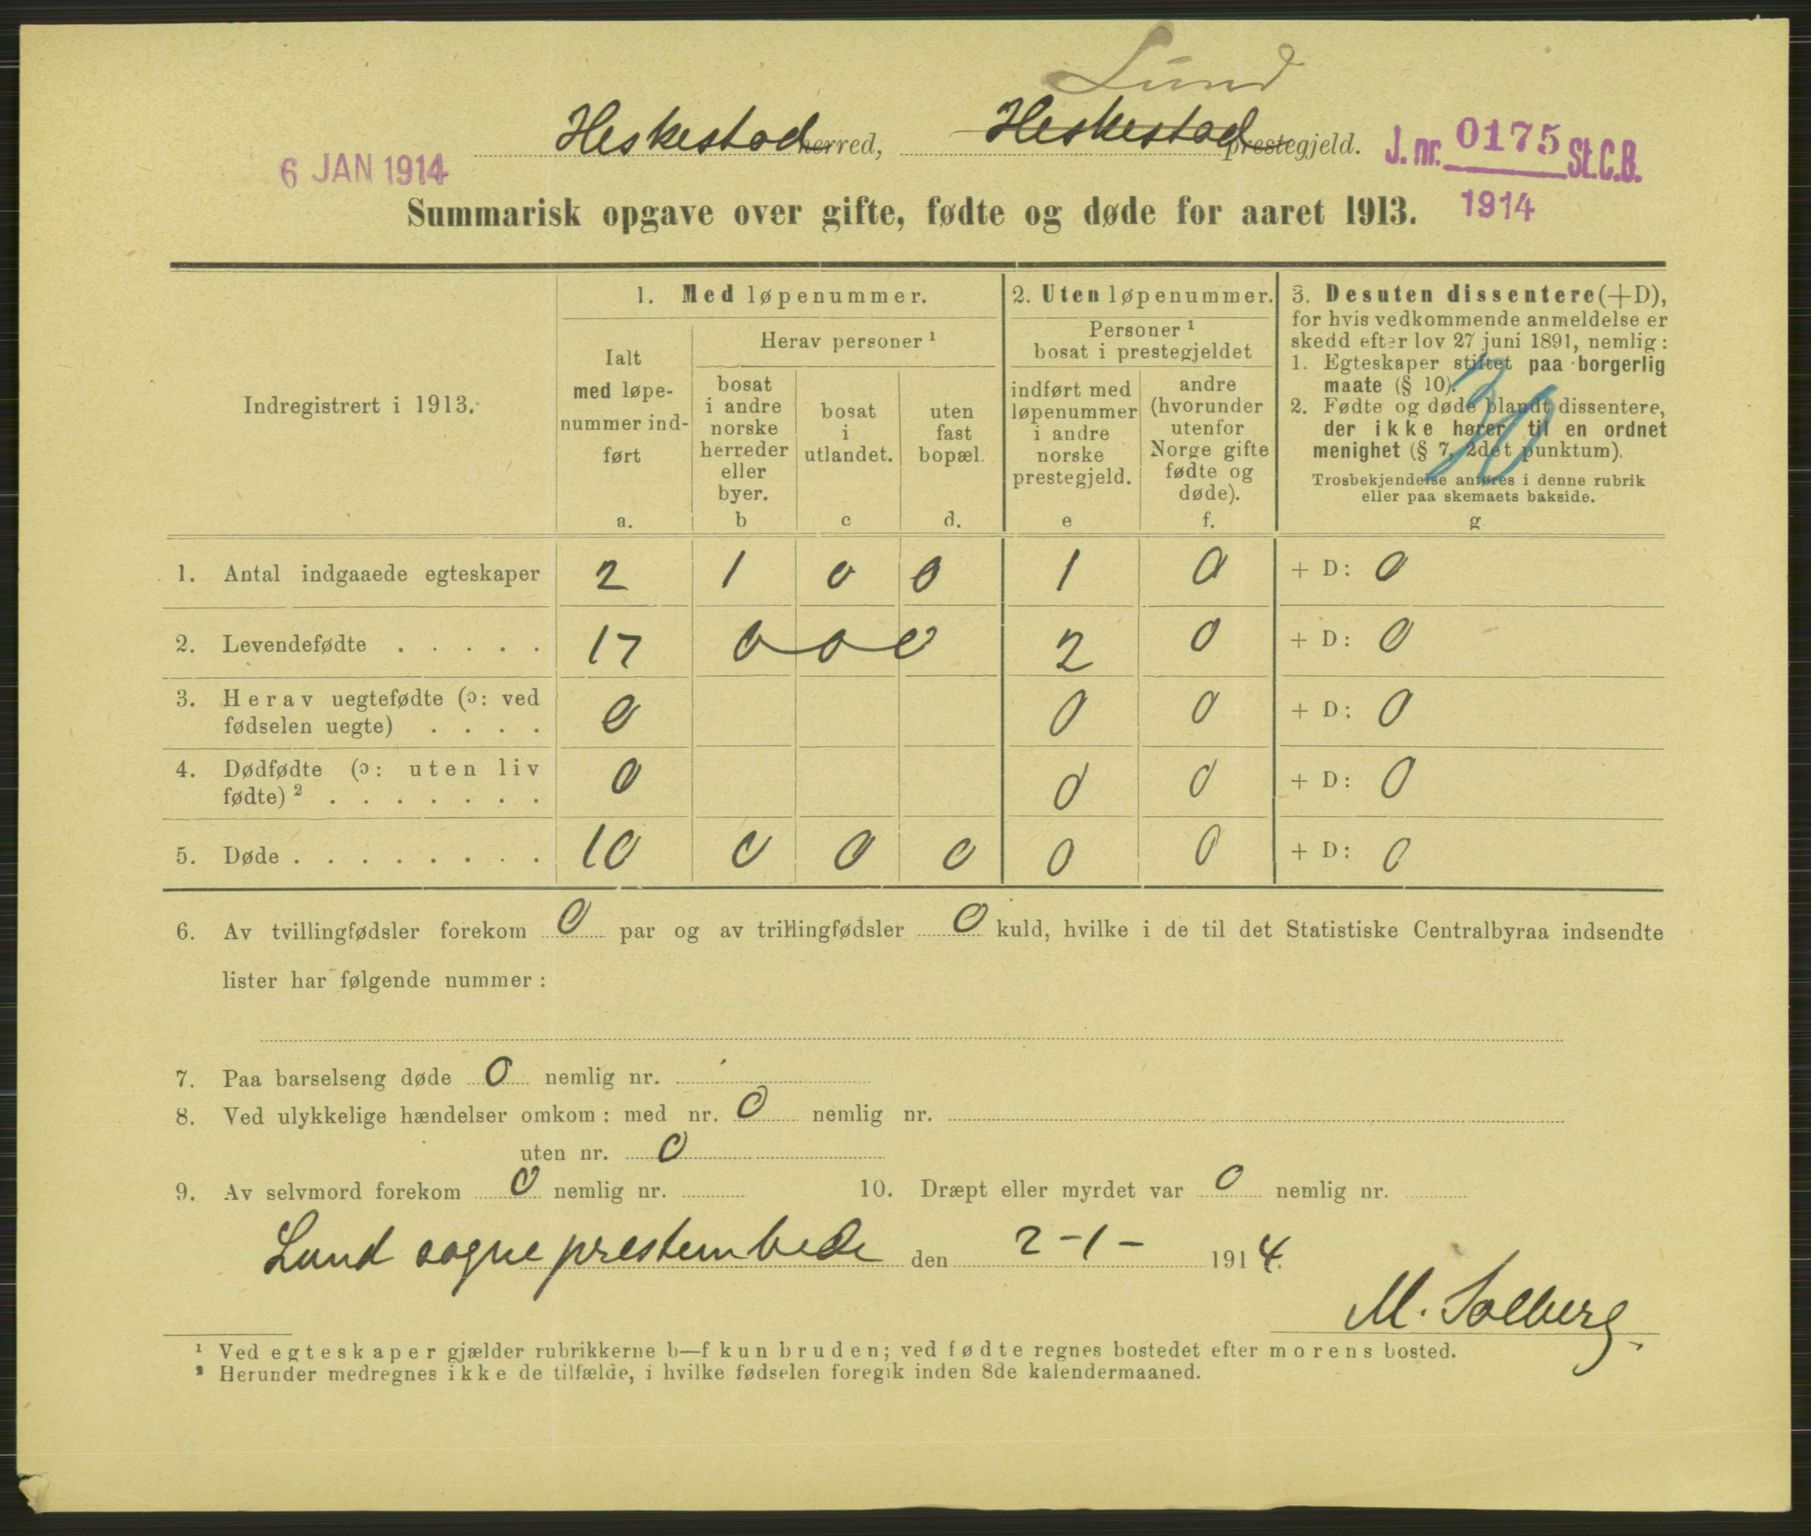 Lund
Heskestad herred, Heskestad prestegjeld.
6 JAN 1914
J. nr. 0175 St.C.B.
1914
Summarisk opgave over gifte, fødte og døde for aaret 1913.
Indregistrert i 1913.
1. Med løpenummer.
Ialt
med løpe-
nummer ind-
ført
a.
Herav personer ¹
bosat
i andre
norske
herreder
eller
byer.
b
bosat
i
utlandet.
c
uten
fast
bopæl.
d.
2. Uten løpenummer.
Personer ¹
bosat i prestegjeldet
indført med
løpenummer
i andre
norske
prestegjeld.
e
andre
(hvorunder
utenfor
Norge gifte
fødte og
døde).
f.
3. Desuten dissentere (+D),
for hvis vedkommende anmeldelse er
skedd efter lov 27 juni 1891, nemlig:
1. Egteskaper stiftet paa borgerlig
maate (§ 10).
2. Fødte og døde blandt dissentere,
der ikke hører til en ordnet
menighet (§ 7, 2det punktum).
Trosbekjendelse anføres i denne rubrik
eller paa skemaets bakside.
g
1. Antal indgaaede egteskaper 2 1 0 0 1 0 + D: 0
2. Levendefødte . . . . . 17 0 0 0 2 0 + D: 0
3. Herav uegtefødte (ɔ: ved
fødselen uegte) . . . . 0 0 0 + D: 0
4. Dødfødte (ɔ: uten liv
fødte) ² . . . . . . . 0 0 0 + D: 0
5. Døde . . . . . . . . 10 0 0 0 0 0 + D: 0
6. Av tvillingfødsler forekom 0 par og av trillingfødsler 0 kuld, hvilke i de til det Statistiske Centralbyraa indsendte
lister har følgende nummer:
7. Paa barselseng døde 0 nemlig nr.
8. Ved ulykkelige hændelser omkom: med nr. 0 nemlig nr.
uten nr. 0
9. Av selvmord forekom 0 nemlig nr. 10. Dræpt eller myrdet var 0 nemlig nr.
Lund sogneprestembede den 2-1- 1914.
M. Solberg.
¹ Ved egteskaper gjælder rubrikkerne b—f kun bruden; ved fødte regnes bostedet efter morens bosted.
² Herunder medregnes ikke de tilfælde, i hvilke fødselen foregik inden 8de kalendermaaned.